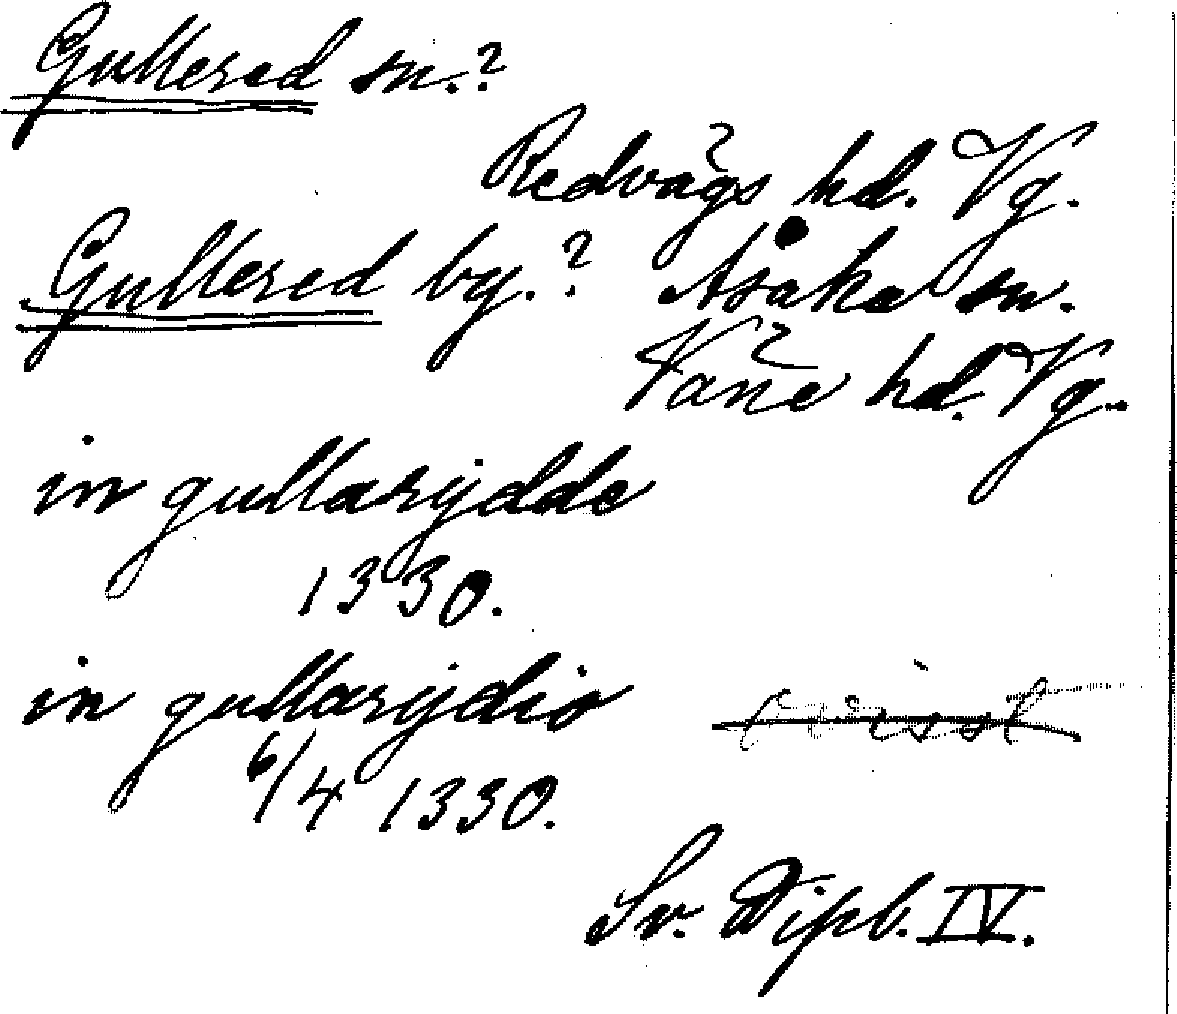 Gullered sn.?
Redvägs hd. Vg.
Gullered by.? Åsaka sn.
Väne hd. Vg.
in gullarydde
1330.
in gullarydio
6/4 1330.
Sv. Dipl. IV.